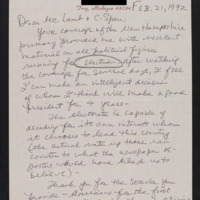 Troy, Michigan 48098
FEB. 21, 1992
Dear Mr. Lamb + C-Span,
Your coverage of the New Hampshire
primary provided me with excellent
material on all political figures
running for election. After watching
the coverage for several days, I feel
I can make an intelligent decision
of whom I think will make a good
president for 4 years—
The electorate is capable of
deciding for its own interests whom
it chooses to lead this country
(the actual vote up there ran
counter to what the newspaper
would have liked us to
believe).
Thank you for the service you
provide - Americans for the first